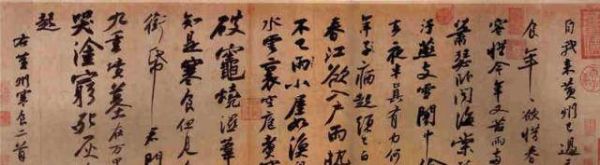 自我來黃州已過
食年〃欲惜春
容惜今年又苦雨兩
蕭瑟臥聞海棠
汙燕支雪闇中偷
去夜半真有力何
年子病起頭已白
春江欲入戶雨勢
不已雨小屋如漁
水雲裏空庖煮
破竈燒濕葦
知是寒食但見
銜帋君門
九重墳墓在万里
哭塗窮死灰
起
右黃州寒食二首